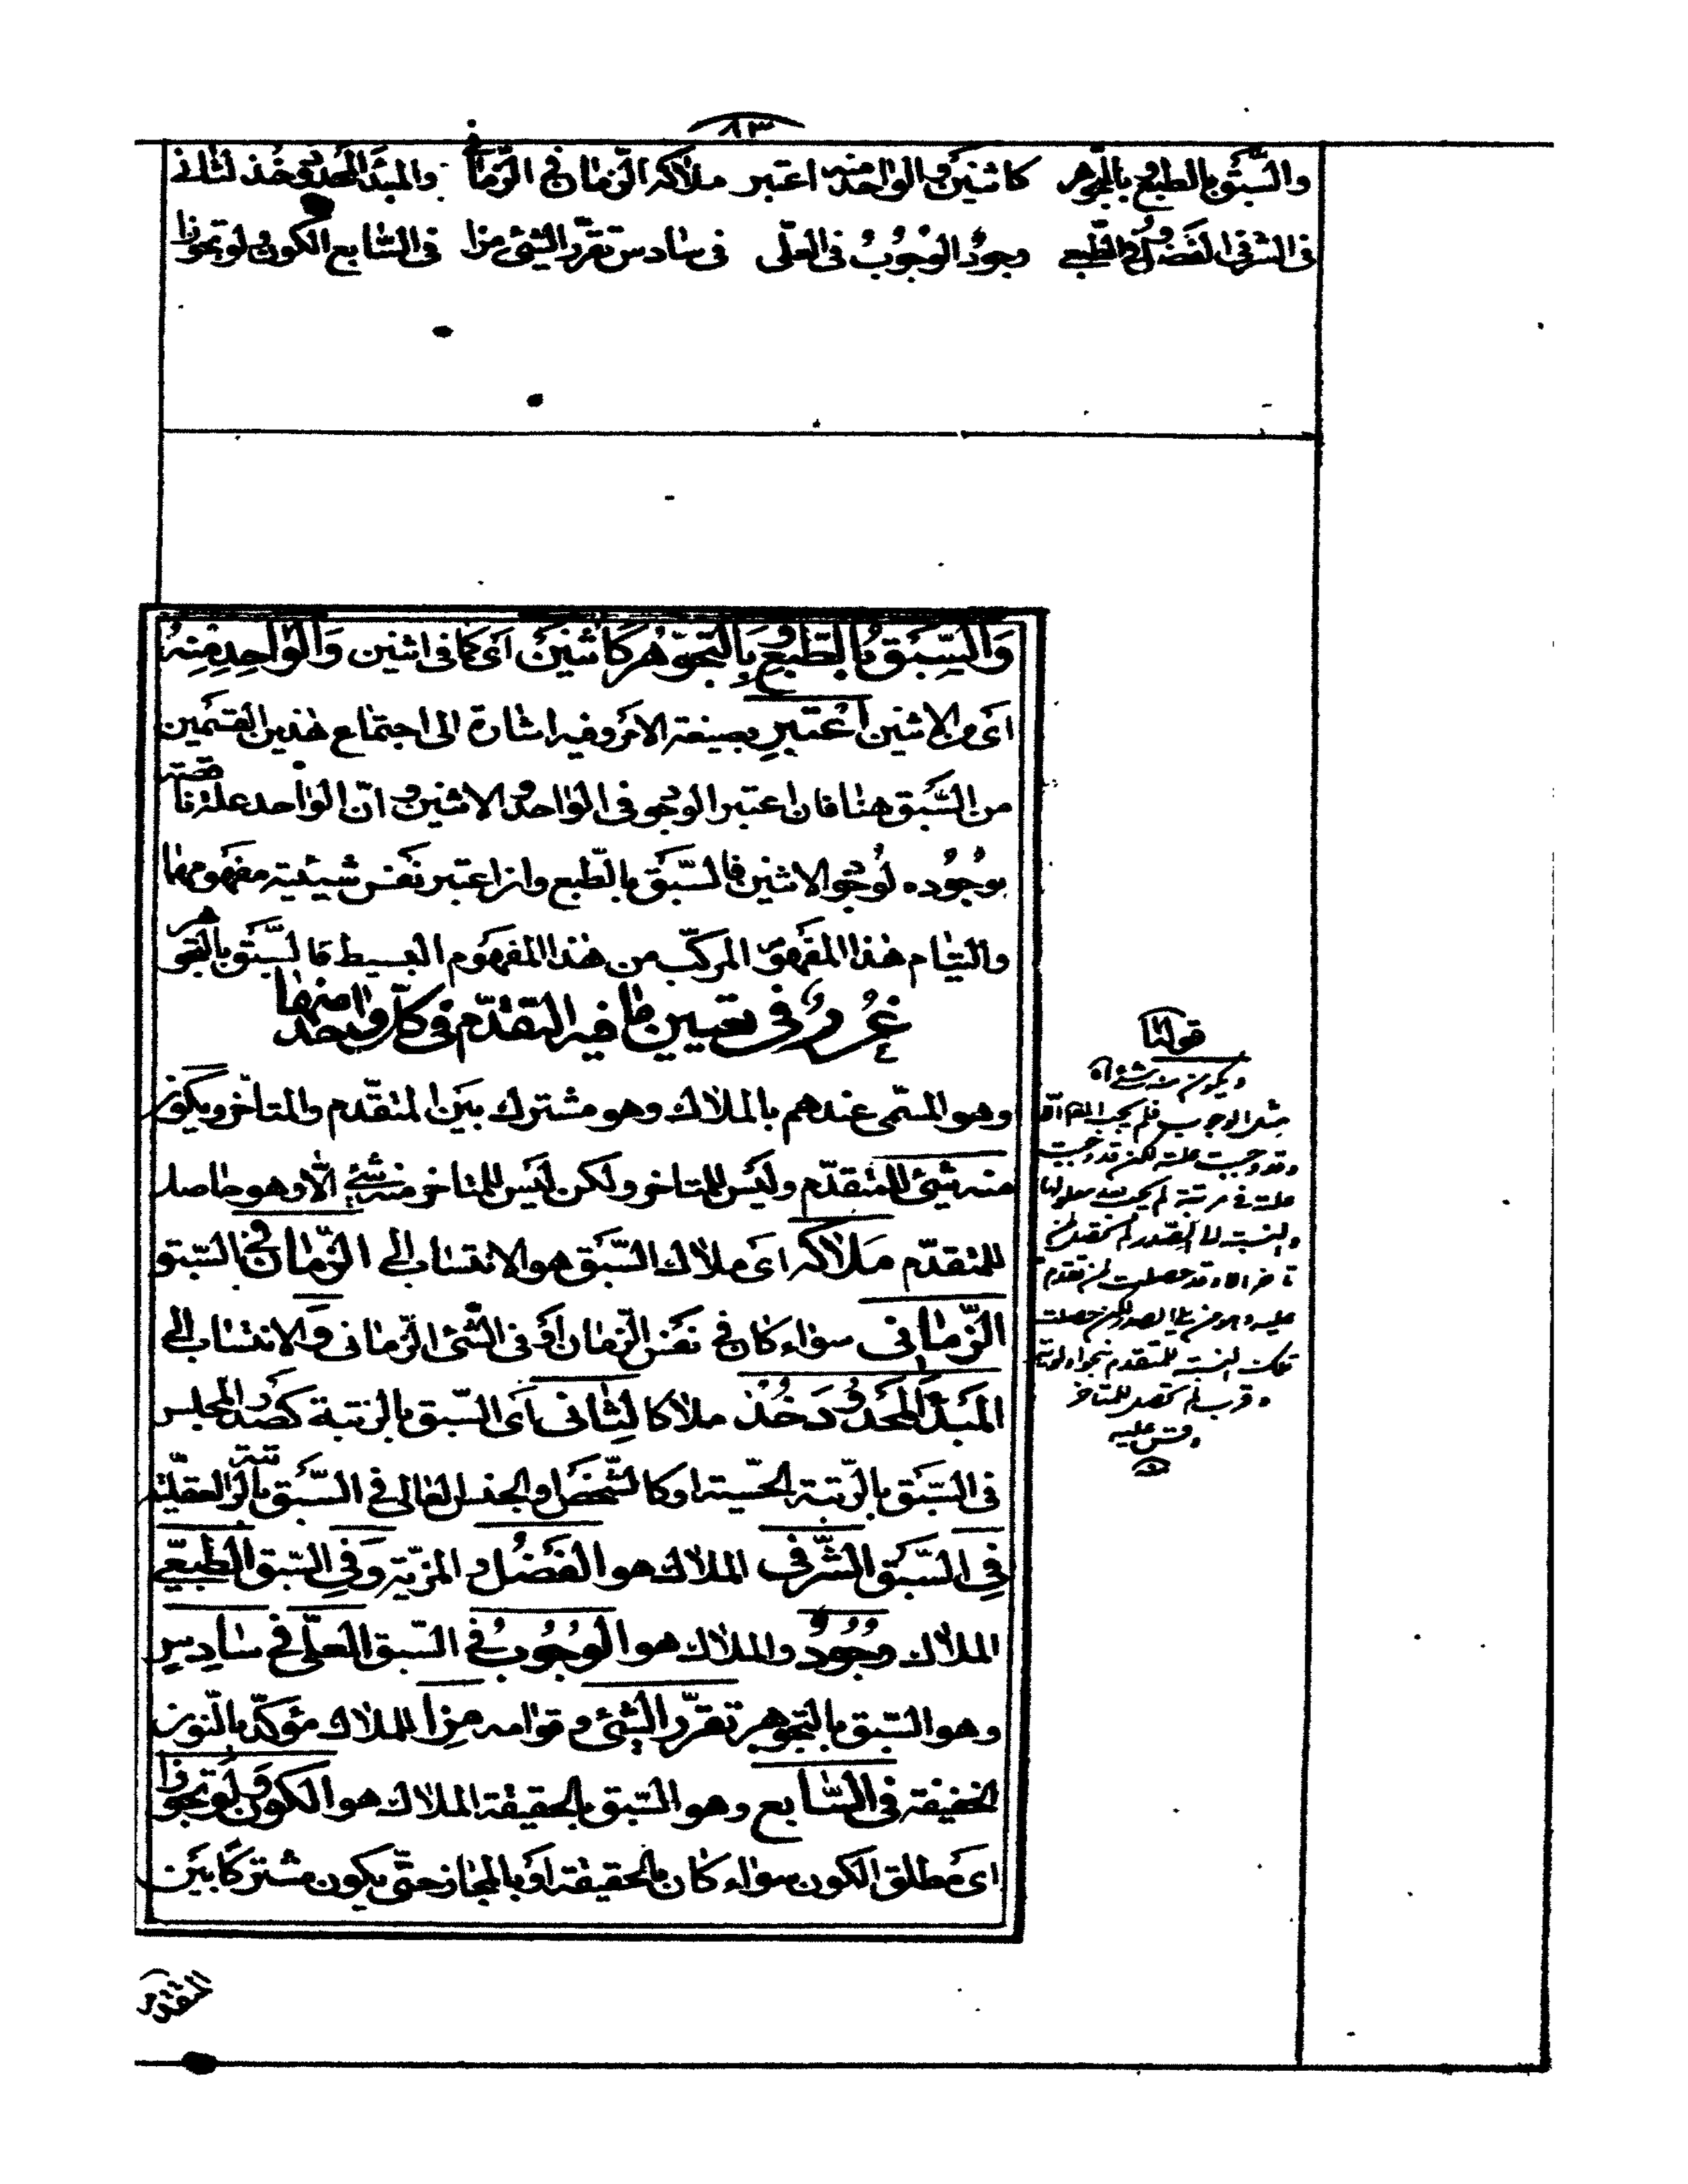 ٨٣
والسّبق بالطبع وبالتجوهر كاثنين والواحد منه اعتبر ملاكه الزمان في الزماني والمبدأ المحدود خذ لثاني
في الشرفي الفضل وفي الطبعي وجود الوجوب في العلّي في سادس تقرّر الشيء مزا في السّابع الكون ولو تجوّزا
وَالسّبَق بالطّبع وَبالتجوّهر كاثنَين اى كما فى اثنين وَالوٰاحِد مِنهُ
اى من الاثنين اعْتبر بصيغة الامر وفيه اشارة الى اجتماع هٰذين القسمين
من السّبق هنا فان اعتبر الوجود فى الواحد والاثنين وانّ الواحد علة ناقصته
بوجوده لوجود الاثنين فالسّبق بالطّبع وان اعتبر نفس شيئية مفهومهما
والتيام هذا المفهوم المركّب من هذا المفهوم البسيط فالسّبق بالتجوهر
غُرَرٌ فى تعيين ما فيه التقدّم فى كلّ واحد منها
وهو المسمى عندهم بالملاك وهو مشترك بين المتقدّم والمتاخر ويكون
منه شيئ للمتقدّم وليس للمتاخر ولكن ليس للمتاخر منه شيئ الّا وهو حاصل
للمتقدّم مَلاكه اى ملاك السّبق هو الانتساب الى الزّمان فى السّبق
الزّمانى سواء كان فى نفس الزمان أو فى الشئ الزّمانى وَالانتساب الى
المَبدأ المَحدُود خُذ ملاكا لِثانى اى السّبق بالرتبة كصدر المجلس
فى السّبق بالرّتبة الحسّية او كالشّخص او الجنس العالى فى السّبق بالرتبة العقليّة
فِى السّبق الشّرفى الملاك هو الفَضْل والمزيّة وَفِى السّبق الطّبعِى
الملاك وُجُودٌ والملاك هو الوُجُوبُ فى السّبق العلّى فى سَادِسٍ
وهو السّبق بالتجوهر تقرّر الشئ وقوامه مزا للملاك مؤكّد بالنون
الخفيفة فى السّابع وهو السّبق بالحقيقة الملاك هو الكون وَلَو تجوّزا
اى مطلق الكون سواء كان بالحقيقة او بالمجاز حتّى يكون مشتركا بين
المتقدّم
قولنا
ويكون منه شئ اه
مثل الوجوب فلم يجب الا
وقد وجبت علته لكن قد وجبت
علته فى مرتبة لم يجب بعد معلولها
والنسبة الى الصدر لم تحصل لمن
تاخر الا وقد حصلت لمن تقدم
عليه وهو من يلى الصدر ولكن حصلت
تلك النسبة للمتقدم بجواره
وقرب لم تحصل للمتاخر
وقس عليه